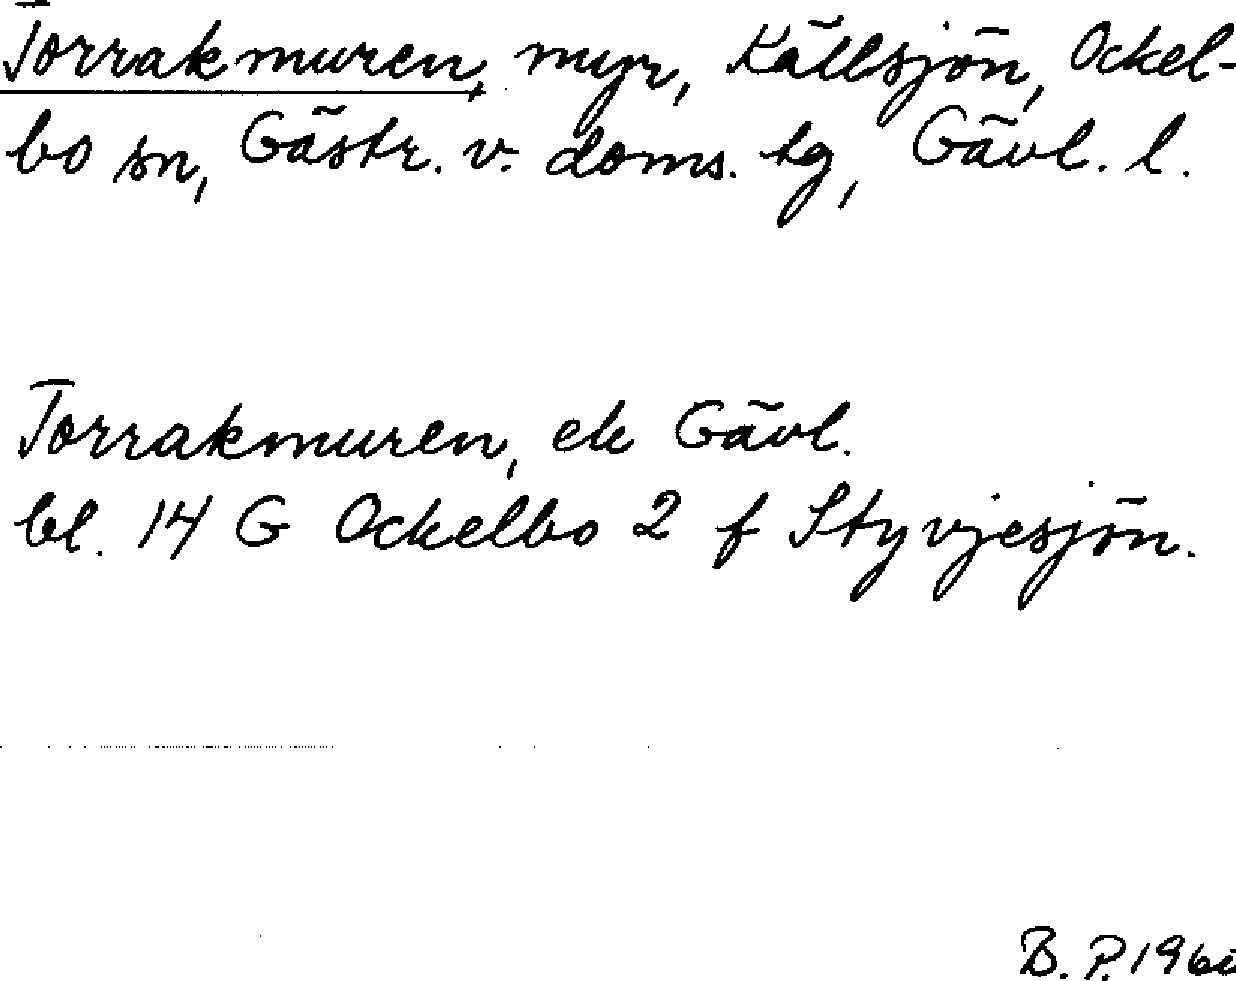 Torrakmuren, myr, Källsjön, Ockel-
bo sn, Gästr. v. doms. tg, Gävl. l.
Torrakmuren, ek Gävl.
bl. 14 G Ockelbo 2 f Styvjesjön.
B. P.